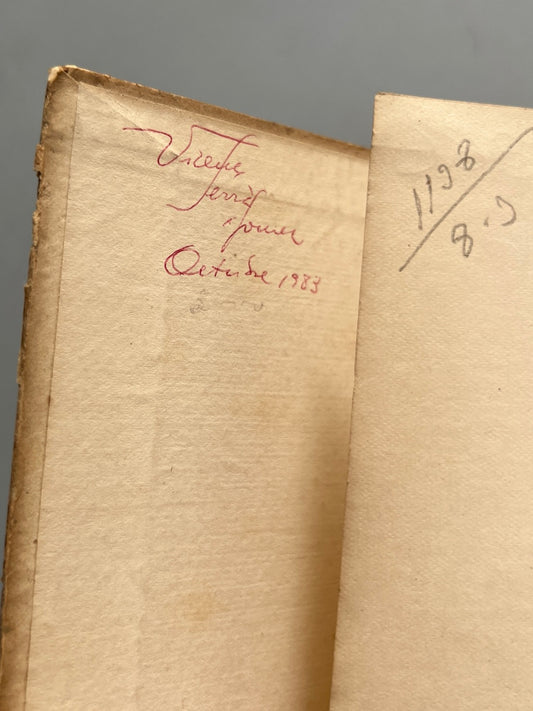 Vicente
Ferrer
Gomez
Octubre 1983
1198
8.9